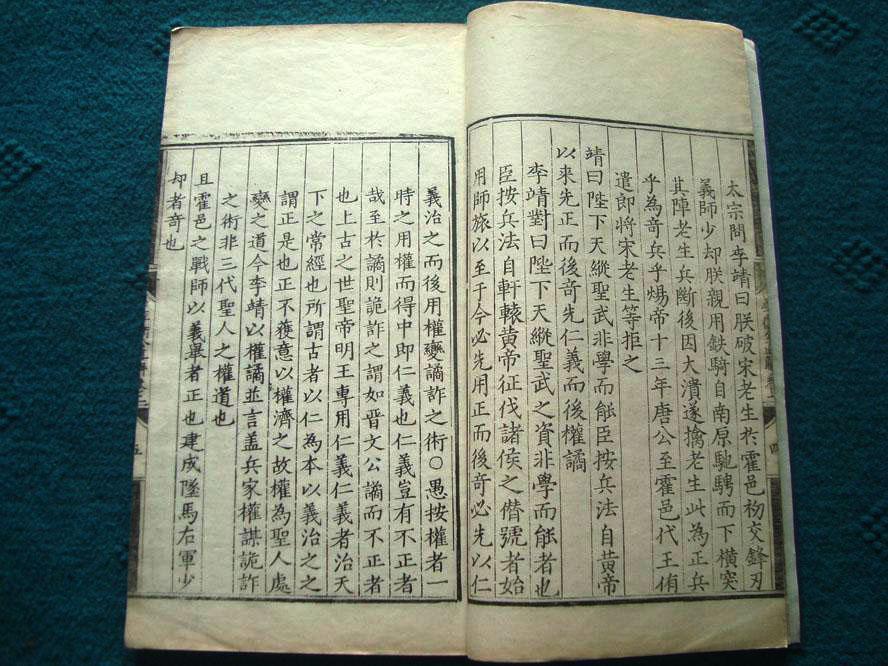 太宗問李靖曰朕破宋老生於霍邑初交鋒刃
義師少却朕親用鉄騎自南原馳騁而下橫突
其陣老生兵斷後因大潰遂擒老生此為正兵
乎為奇兵乎煬帝十三年唐公至霍邑代王侑
遣即將宋老生等拒之
靖曰陛下天縱聖武非學而能臣按兵法自黃帝
以來先正而後奇先仁義而後權譎
李靖對曰陛下天縱聖武之資非學而能者也
臣按兵法自軒轅黃帝征伐諸侯之僣號者始
用師旅以至于今必先用正而後奇必先以仁
四
義治之而後用權變譎詐之術○愚按權者一
時之用權而得中即仁義也仁義豈有不正者
哉至於譎則詭詐之謂如晋文公譎而不正者
也上古之世聖帝明王專用仁義仁義者治天
下之常經也所謂古者以仁為本以義治之之
謂正是也正不獲意以權濟之故權為聖人處
變之道今李靖以權譎並言盖兵家權謀詭詐
之術非三代聖人之權道也
且霍邑之戰師以義舉者正也建成墜馬右軍少
却者奇也
五